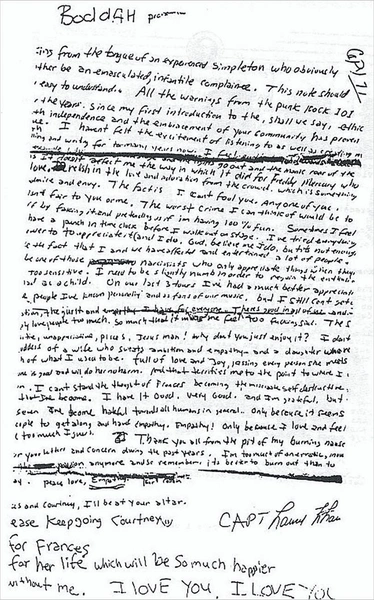 BoddAH
ing from the tongue of an experienced simpleton who obviously
ther be an emasculated, infantile complainee. This note should
easy to understand. All the warnings from the punk Rock 101
the years. since my first introduction to the, shall we say, ethic
th independence and the embracement of your community has proven
e. I haven't felt the excitement of listening to as well as creating m
and writing for too many years now. I feel
the manic roar of the
it doesn't affect me the way in which it did for Freddy Mercury who
love, relish in the love and adoration from the crowd. which is something
admire and envy. The fact is I can't fool you. Any one of you.
isnt fair to you or me. The worst crime I can think of would be to
off by faking it and pretending as if im having 100% fun. Sometimes I feel
have a punch in time clock before I walk out on stage. I've tried everything
to appreciate it (and I do. God, believe me I do, but it's not enough
the fact that I and we have affected and entertained a lot of people.
be one of those narcissists who only appreciate things when they
too sensitive. I need to be slightly numb in order to regain the enthus
as a child. On our last 3 tours I've had a much better appreciatio
people I've known personally and as fans of our music, but I still can't get
tion, the guilt and empathy I have for everyone. There's good in all of us and
ly love people too much. So much that it makes me feel too fucking sad. The s
tive, unappreciative, pisces, Jesus man! why don't you just enjoy it? I dont
goddess of a wife who sweats ambition and empathy.. and a daughter who
h of what I used to be. full of love and joy, kissing every person she meets
one is good and will do her no harm. And that terrifies me to the point where I
n. I can't stand the thought of Frances becoming the miserable self destructive,
that I've become. I have it Good. very Good. and I'm grateful. but
seven I've become hateful towards all humans in general.. Only because it seems
eople to get along and have empathy. Empathy! Only because I love and feel
too much I guess. Thank you all from the pit of my burning nause
or your letters and concern during the past years. I'm too much of an erratic, moo
passion anymore and so remember its better to burn out than to
ay. peace love, Empathy.
es and courtney, I'll be at your altar.
ease Keep going Courtney
CAPT
for Frances
for her life which will be so much happier
without me. I LOVE YOU, I LOVE YOU